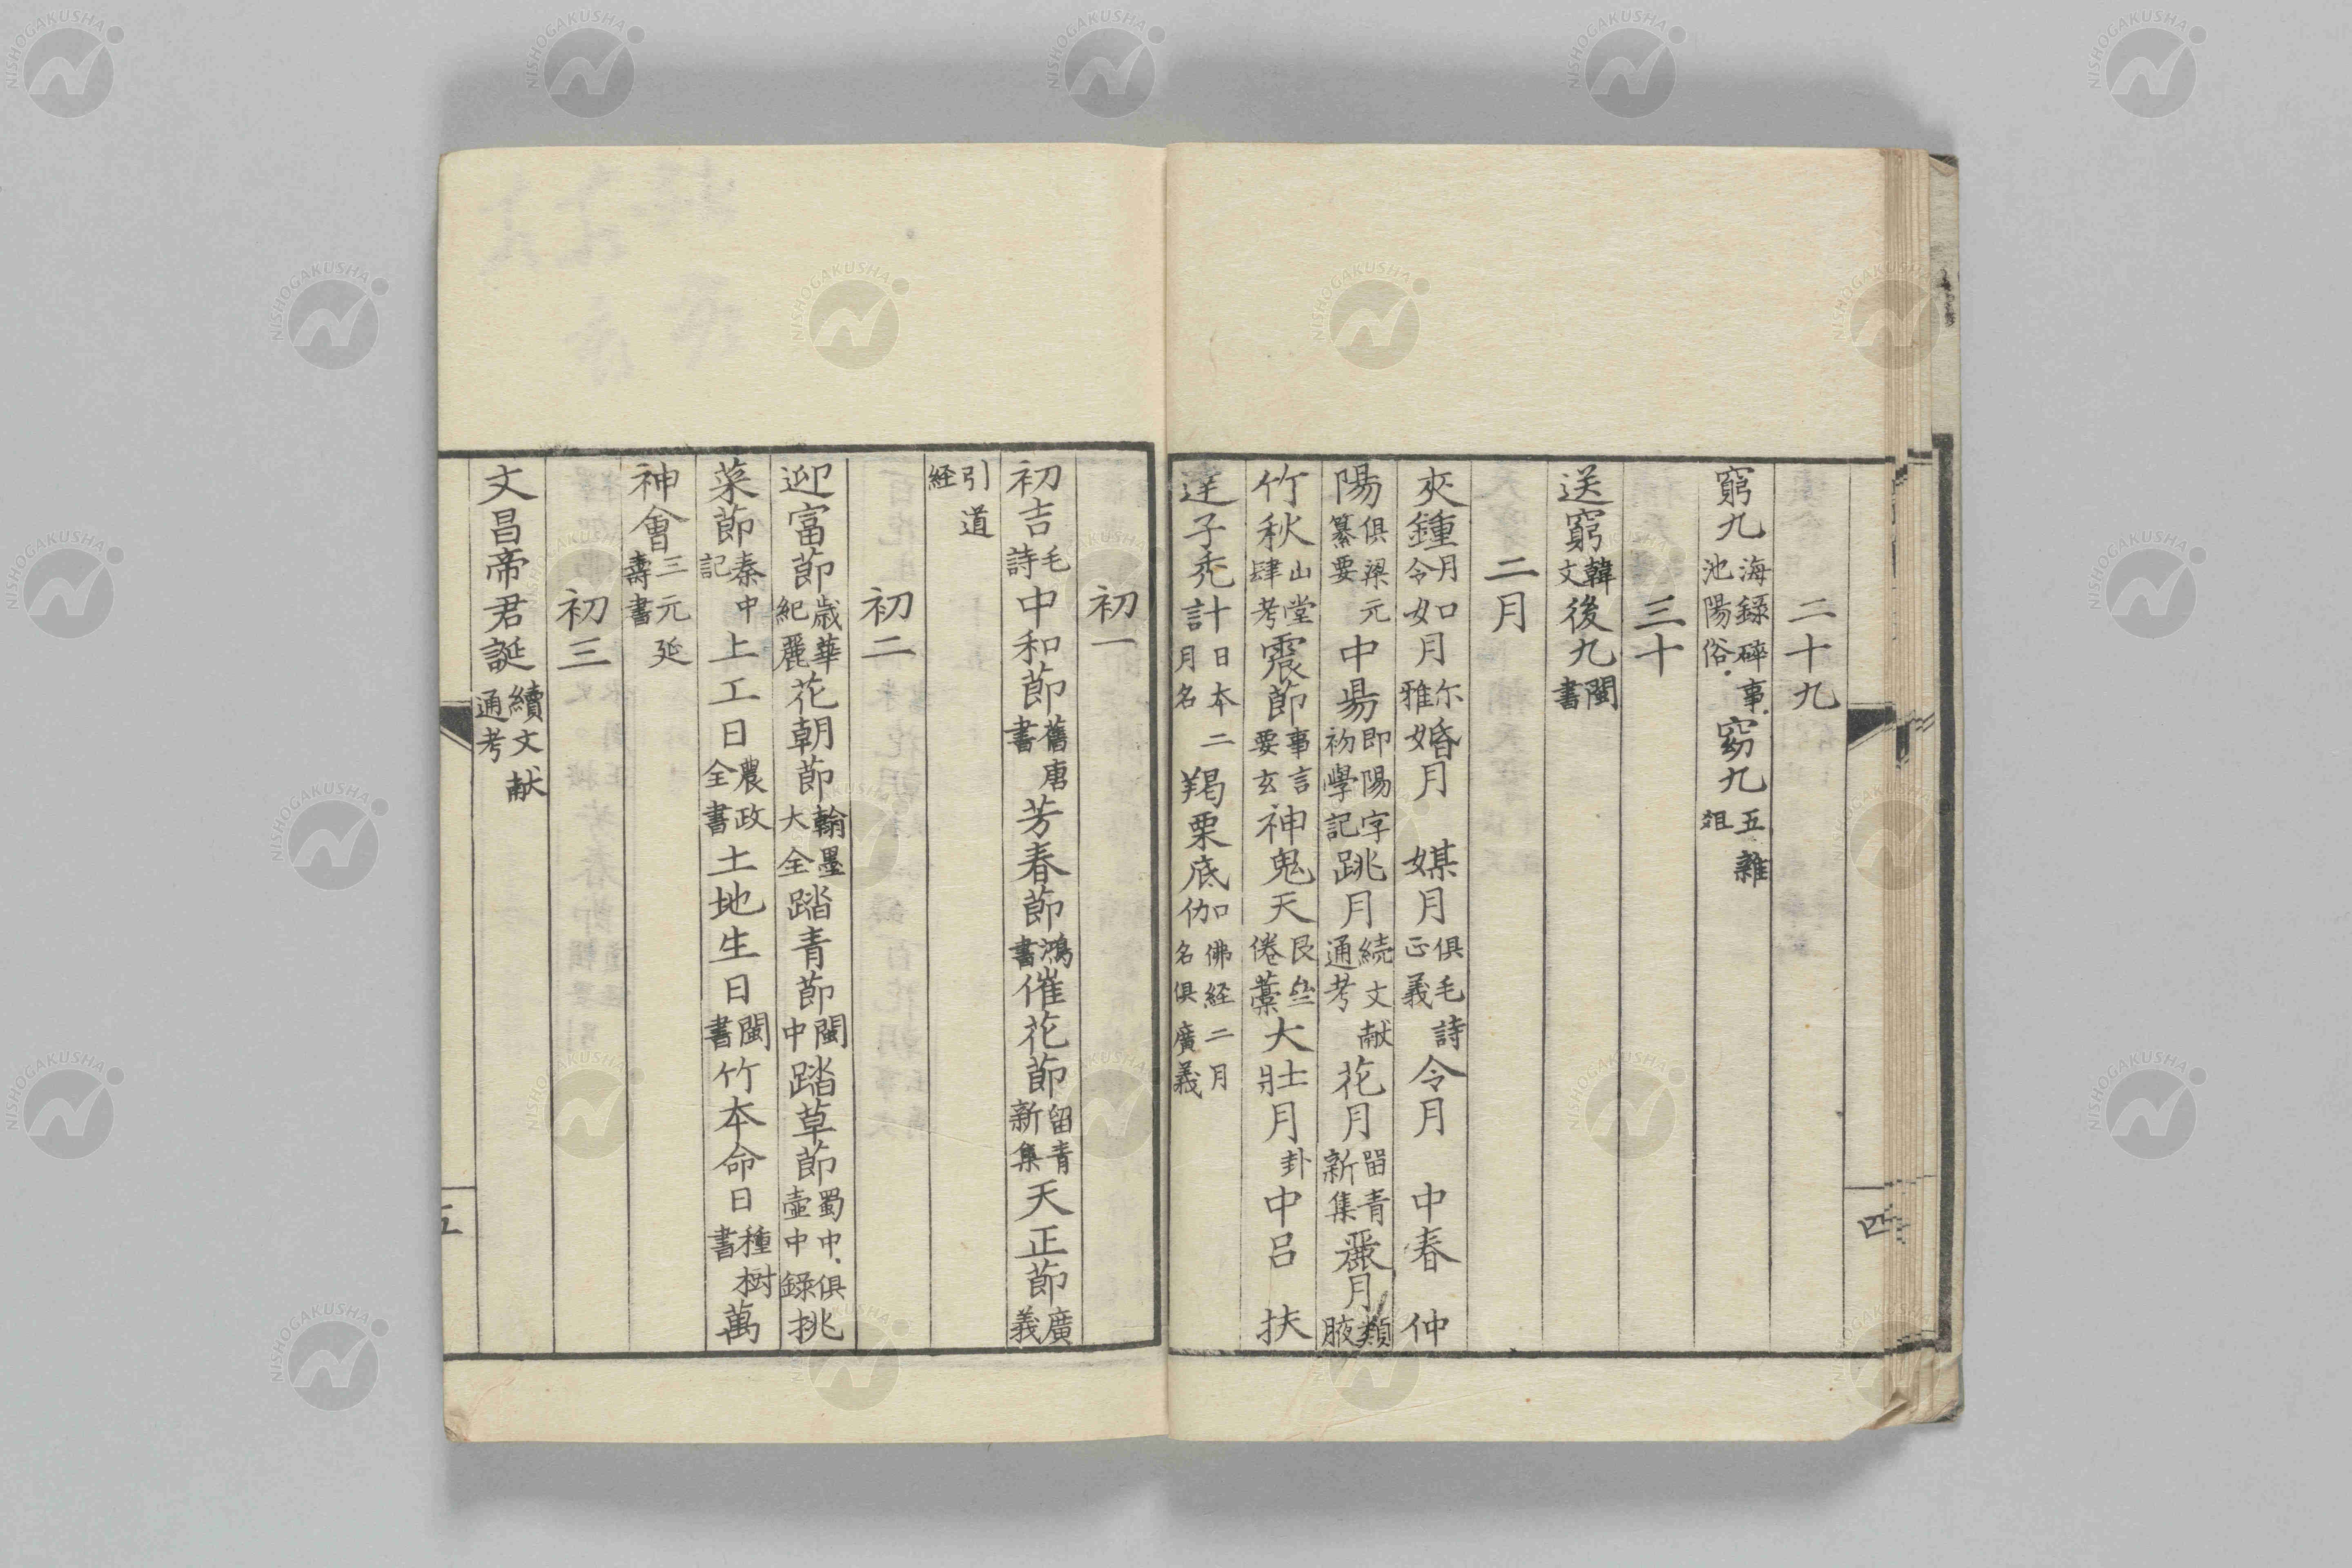 二十九
窮九海錄碎事池陽俗窈九五雜俎
三十
送窮韓文後九閩書
二月
夾鍾月令如月尔雅婚月 媒月俱毛詩正義令月 中春 仲
陽俱梁元纂要中昜即陽字初學記跳月続文献通考花月留青新集麗月類腋
竹秋山堂肆考震節事言要玄神鬼天艮岳倦藁大壯月卦中呂 扶
達子禿計日本二月名羯栗底伽佛経二月名俱廣義
四
初一
初吉毛詩中和節舊唐書芳春節鴻書催花節留青新集天正節廣義
引道経
初二
迎富節歳華紀麗花朝節翰墨大全踏青節閩中踏草節蜀中俱壺中錄挑
菜節秦中記上工日農政全書土地生日閩書竹本命日種樹書萬
神會三元延壽書
初三
文昌帝君誕續文献通考
五
NISHOGAKUSHA